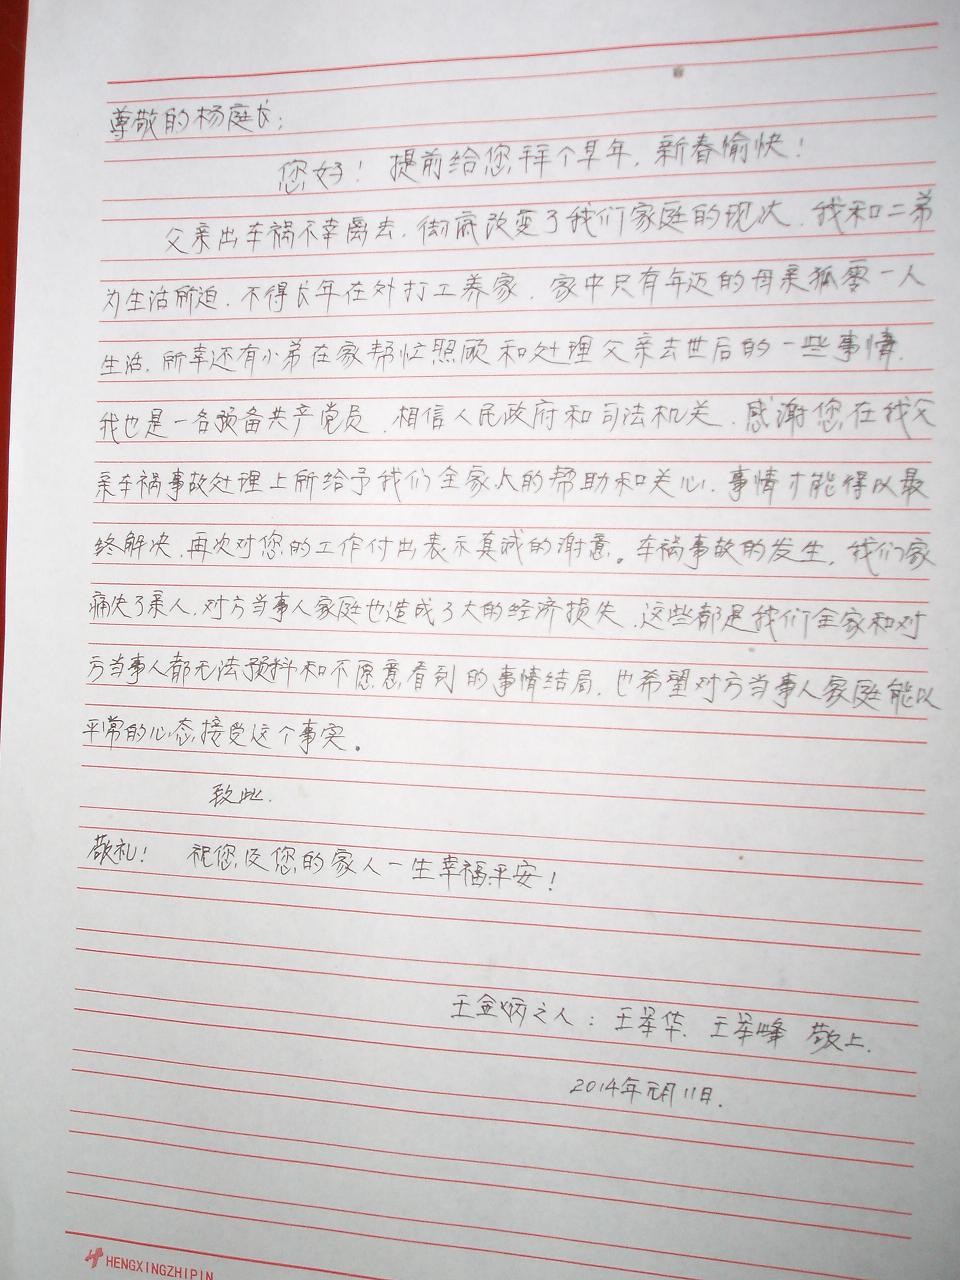 尊敬的杨庭长：
您好！提前给您拜个早年，新春愉快！
父亲出车祸不幸离去，彻底改变了我们家庭的现次，我和二弟
为生活所迫，不得长年在外打工养家，家中只有年迈的母亲狐零一人
生活，所幸还有小弟在家帮忙照顾和处理父亲去世后的一些事情，
我也是一名预备共产党员，相信人民政府和司法机关，感谢您在我父
亲车祸事故处理上所给予我们全家人的帮助和关心，事情才能得以最
终解决，再次对您的工作付出表示真诚的谢意。车祸事故的发生，我们家
痛失了亲人，对方当事人家庭也造成了大的经济损失，这些都是我们全家和对
方当事人都无法预料和不愿意看到的事情结局，也希望对方当事人家庭能以
平常的心态接受这个事实。
致此.
敬礼！ 祝您及您的家人一生幸福平安！
王金炳之人：王举华.王举峰 敬上.
2014年元月11日.
HENGXINGZHIPIN